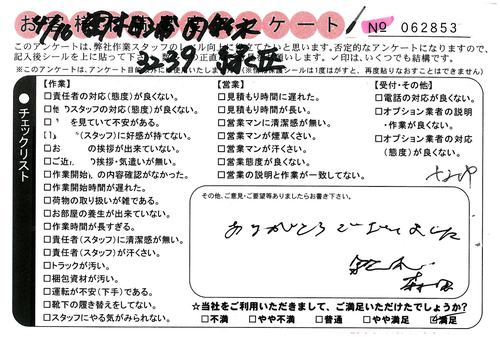 お
アンケート
No 062853
このアンケートは、弊社作業スタッフのレベル向上に役立てたいと思います。否定的なアンケートになりますので、
記入後シールを上に貼って下さい。
の正直
✓印は、いくつでも結構です。
※このアンケートは、アンケート目的以外に使用いたしません。(※情報保護シールは1度はがすと、再度貼りなおすことはできません)
チェックリスト
【作業】
□責任者の対応(態度)が良くない。
□他のスタッフの対応(態度)が良くない。
を見ていて不安がある。
(スタッフ)に好感が持てない。
□お の挨拶が出来ていない。
□ご近 の挨拶・気遣いが無い。
□作業開始 の内容確認がなかった。
□作業開始時間が遅れた。
□荷物の取り扱いが雑である。
□お部屋の養生が出来ていない。
□作業時間が長すぎる。
□責任者(スタッフ)に清潔感が無い。
□責任者(スタッフ)が汗くさい。
□トラックが汚い。
□梱包資材が汚い。
□運転が不安(下手)である。
□靴下の履き替えをしてない。
□スタッフにやる気がみられない。
【営業】
□見積もり時間に遅れた。
□見積もり時間が長い。
□営業マンに清潔感が無い。
□営業マンが煙草くさい。
□営業マンが汗くさい。
□営業態度が良くない。
□営業の説明と作業が一致してない。
【受付・その他】
□電話の対応が良くない。
□オプション業者の説明
・作業が良くない。
□オプション業者の対応
(態度)が良くない。
その他、ご意見・ご要望等ありましたらお書き下さい。
ありがとうございました
☆当社をご利用いただきまして、ご満足いただけたでしょうか?
□不満 □やや不満 □普通 □やや満足 ☑満足